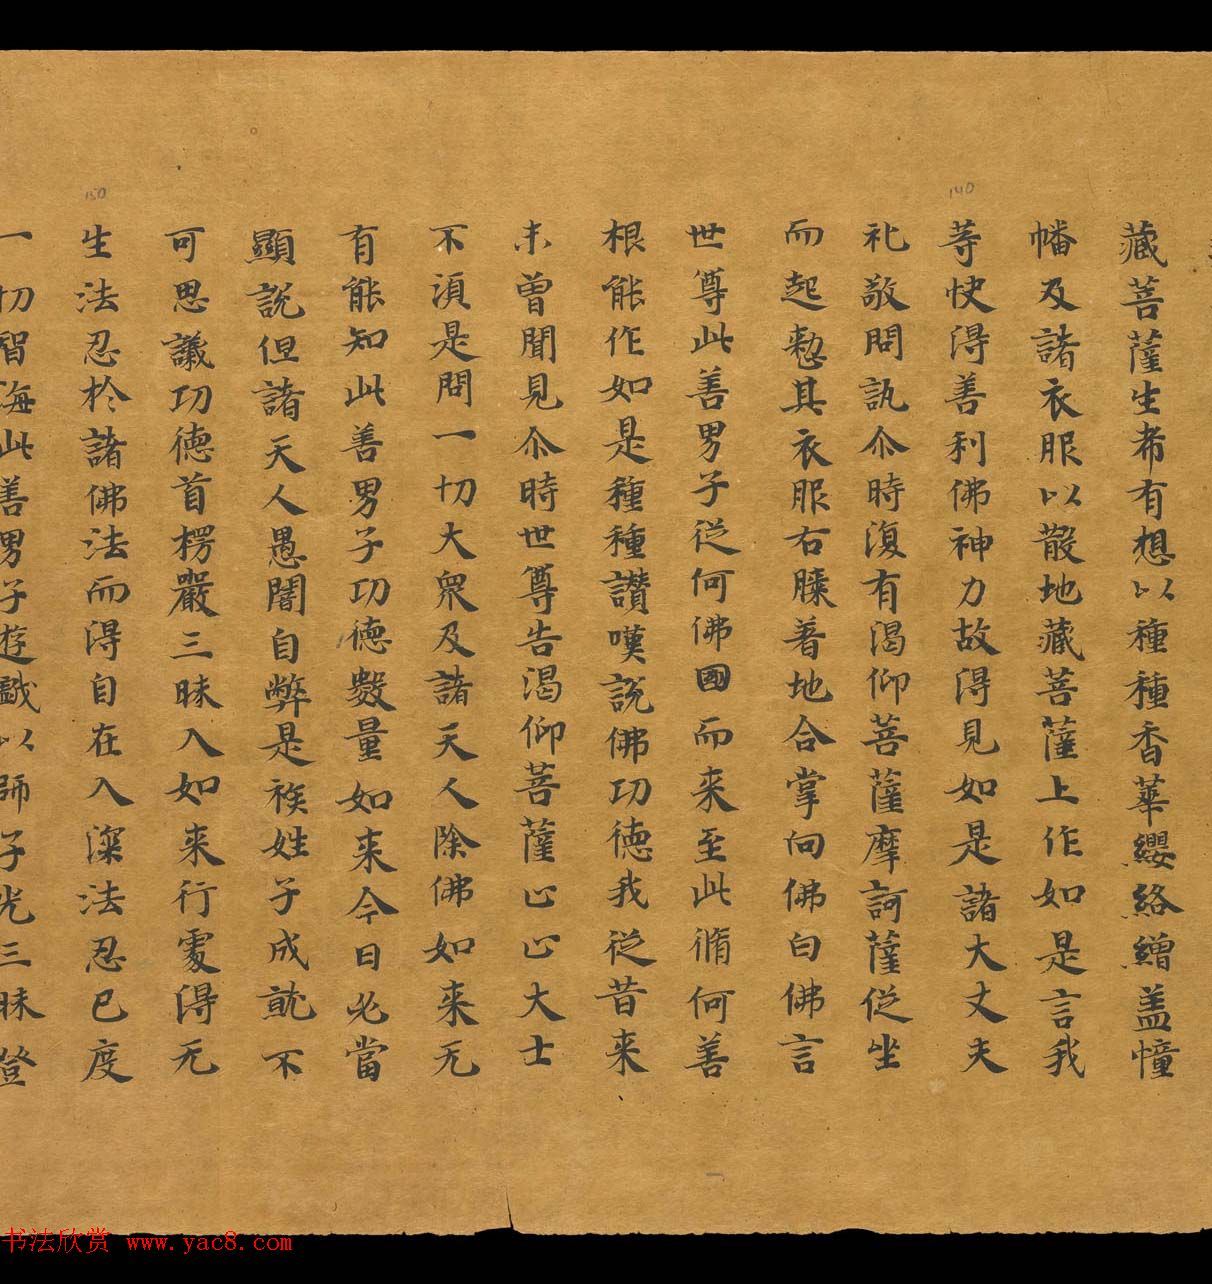 140
150
藏菩薩生希有想以種種香華纓絡繒盖幢
幡及諸衣服以散地藏菩薩上作如是言我
等快得善利佛神力故得見如是諸大丈夫
礼敬問訊尒時復有渴仰菩薩摩訶薩從坐
而起懃其衣服右膝著地合掌向佛白佛言
世尊此善男子從何佛國而来至此脩何善
根能作如是種種讃嘆説佛功德我從昔来
未曾聞見尒時世尊告渴仰菩薩止止大士
不湏是問一切大衆及諸天人除佛如来无
有能知此善男子功德數量如来今日必當
顯説但諸天人愚闇自弊是族姓子成就不
可思議功德首楞嚴三昧入如来行處得无
生法忍於諸佛法而得自在入深法忍已度
一切智海此善男子遊戯以師子光三昧登
书法欣赏 www.yac8.com